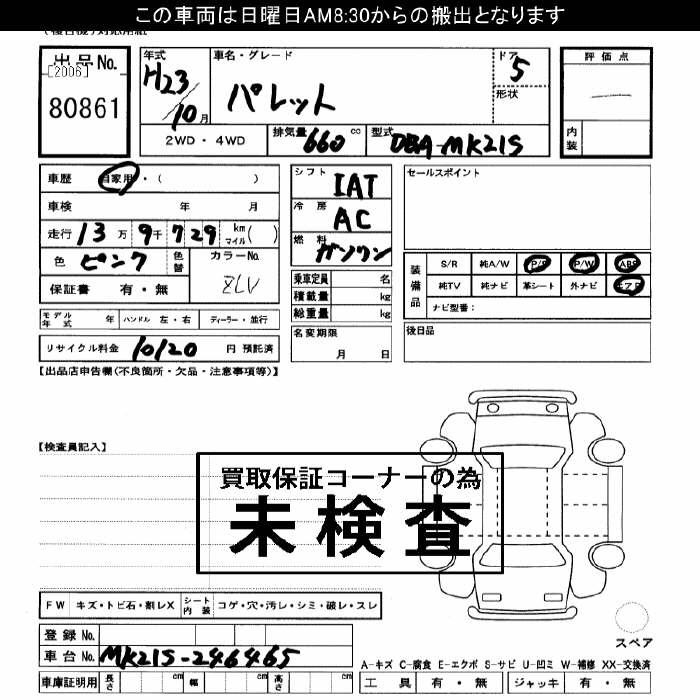 この車両は日曜日AM8:30からの搬出となります
出品No.
[2006]
80861
年式
H23/10月
車名・グレード
パレット
ドア
5
形状
評価点
内装
2WD・4WD
排気量 660 cc
型式 DBA-MK21S
車歴 自家用・( )
車検 年 月
走行 13万9千729 km マイル( )
色 ピンク 色替
カラーNo. ZLV
保証書 有・無
シフト IAT
冷房 AC
燃料 ガソリン
乗車定員 名
積載量 kg
総重量 kg
セールスポイント
装備品
S/R 純A/W P/S P/W ABS
純TV 純ナビ 革シート 外ナビ エアB
ナビ型番:
モデル年式 年 ハンドル 左・右 ディーラー・並行
リサイクル料金 10120 円 預託済
名変期限 月 日
後日品
【出品店申告欄(不良箇所・欠品・注意事項等)】
【検査員記入】
買取保証コーナーの為
未検査
FW キズ・トビ石・割レX シート内装 コゲ・穴・汚レ・シミ・破レ・スレ
登録No.
車台No. MK21S-246465
車庫証明用 長さ cm 幅 cm 高さ cm
スペア
A-キズ C-腐食 E-エクボ S-サビ U-凹ミ W-補修 XX-交換済
工具 有・無 ジャッキ 有・無